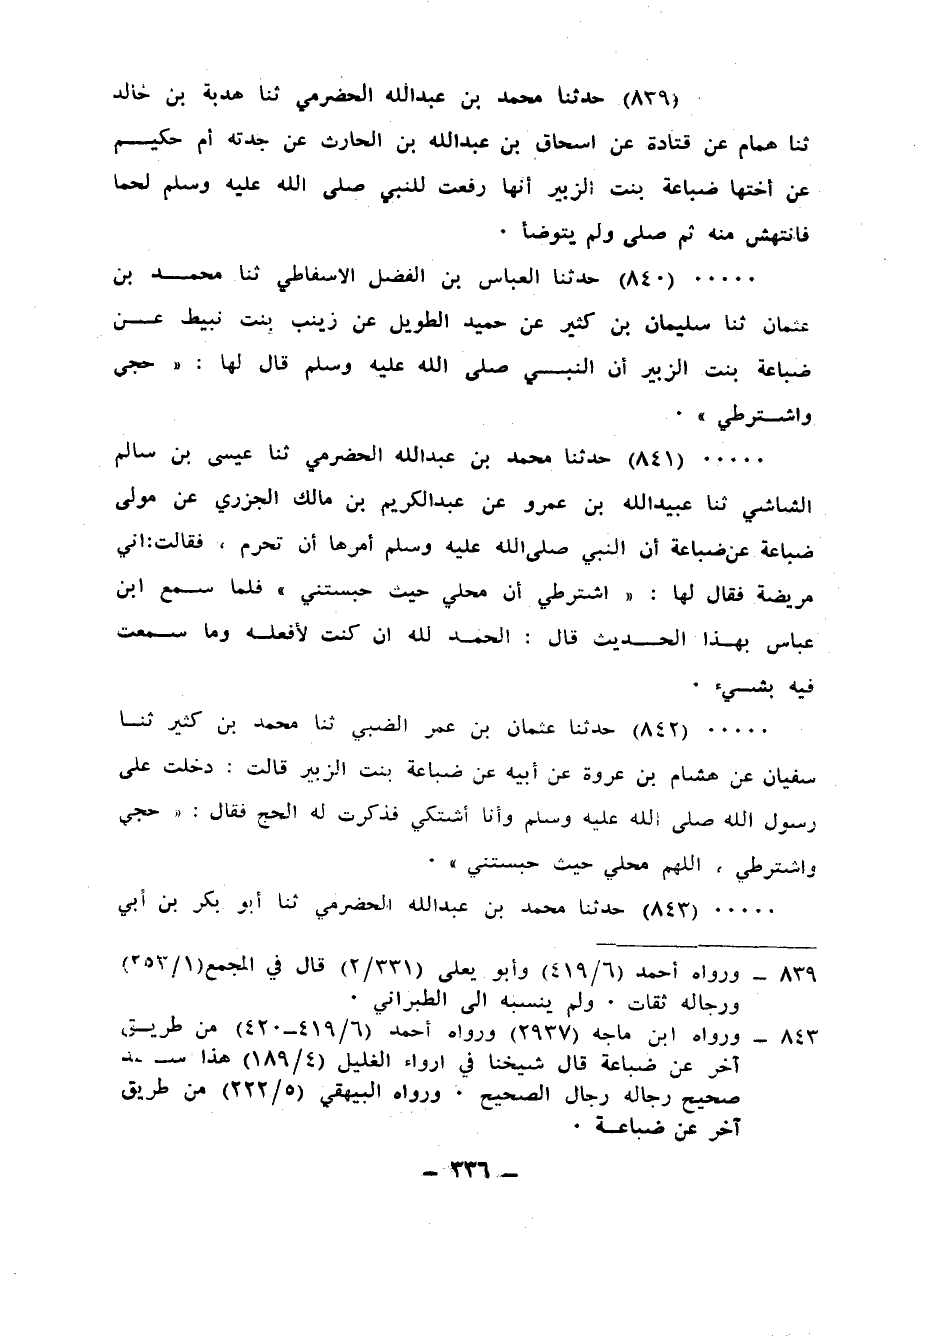 (٨٣٩) حدثنا محمد بن عبدالله الحضرمي ثنا هدبة بن خالد
ثنا همام عن قتادة عن اسحاق بن عبدالله بن الحارث عن جدته أم حكيم
عن أختها ضباعة بنت الزبير أنها رفعت للنبي صلى الله عليه وسلم لحما
فانتهش منه ثم صلى ولم يتوضأ ٠
٠٠٠٠٠ (٨٤٠) حدثنا العباس بن الفضل الاسفاطي ثنا محمد بن
عثمان ثنا سليمان بن كثير عن حميد الطويل عن زينب بنت نبيط عن
ضباعة بنت الزبير أن النبي صلى الله عليه وسلم قال لها : « حجي
واشترطي » ٠
٠٠٠٠٠ (٨٤١) حدثنا محمد بن عبدالله الحضرمي ثنا عيسى بن سالم
الشاشي ثنا عبيدالله بن عمرو عن عبدالكريم بن مالك الجزري عن مولى
ضباعة عن ضباعة أن النبي صلى الله عليه وسلم أمرها أن تحرم ، فقالت:اني
مريضة فقال لها : « اشترطي أن محلي حيث حبستني » فلما سمع ابن
عباس بهذا الحديث قال : الحمد لله ان كنت لأفعله وما سمعت
فيه بشيء ٠
٠٠٠٠٠ (٨٤٢) حدثنا عثمان بن عمر الضبي ثنا محمد بن كثير ثنا
سفيان عن هشام بن عروة عن أبيه عن ضباعة بنت الزبير قالت : دخلت على
رسول الله صلى الله عليه وسلم وأنا أشتكي فذكرت له الحج فقال : « حجي
واشترطي ، اللهم محلي حيث حبستني » ٠
٠٠٠٠٠ (٨٤٣) حدثنا محمد بن عبدالله الحضرمي ثنا أبو بكر بن أبي
٨٣٩ – ورواه أحمد (٤١٩/٦) وأبو يعلى (٢/٣٣١) قال في المجمع(٢٥٣/١)
ورجاله ثقات ٠ ولم ينسبه الى الطبراني ٠
٨٤٣ – ورواه ابن ماجه (٢٩٣٧) ورواه أحمد (٤١٩/٦–٤٢٠) من طريق
آخر عن ضباعة قال شيخنا في ارواء الغليل (١٨٩/٤) هذا سند
صحيح رجاله رجال الصحيح ٠ ورواه البيهقي (٢٢٢/٥) من طريق
آخر عن ضباعة ٠
– ٣٣٦ –